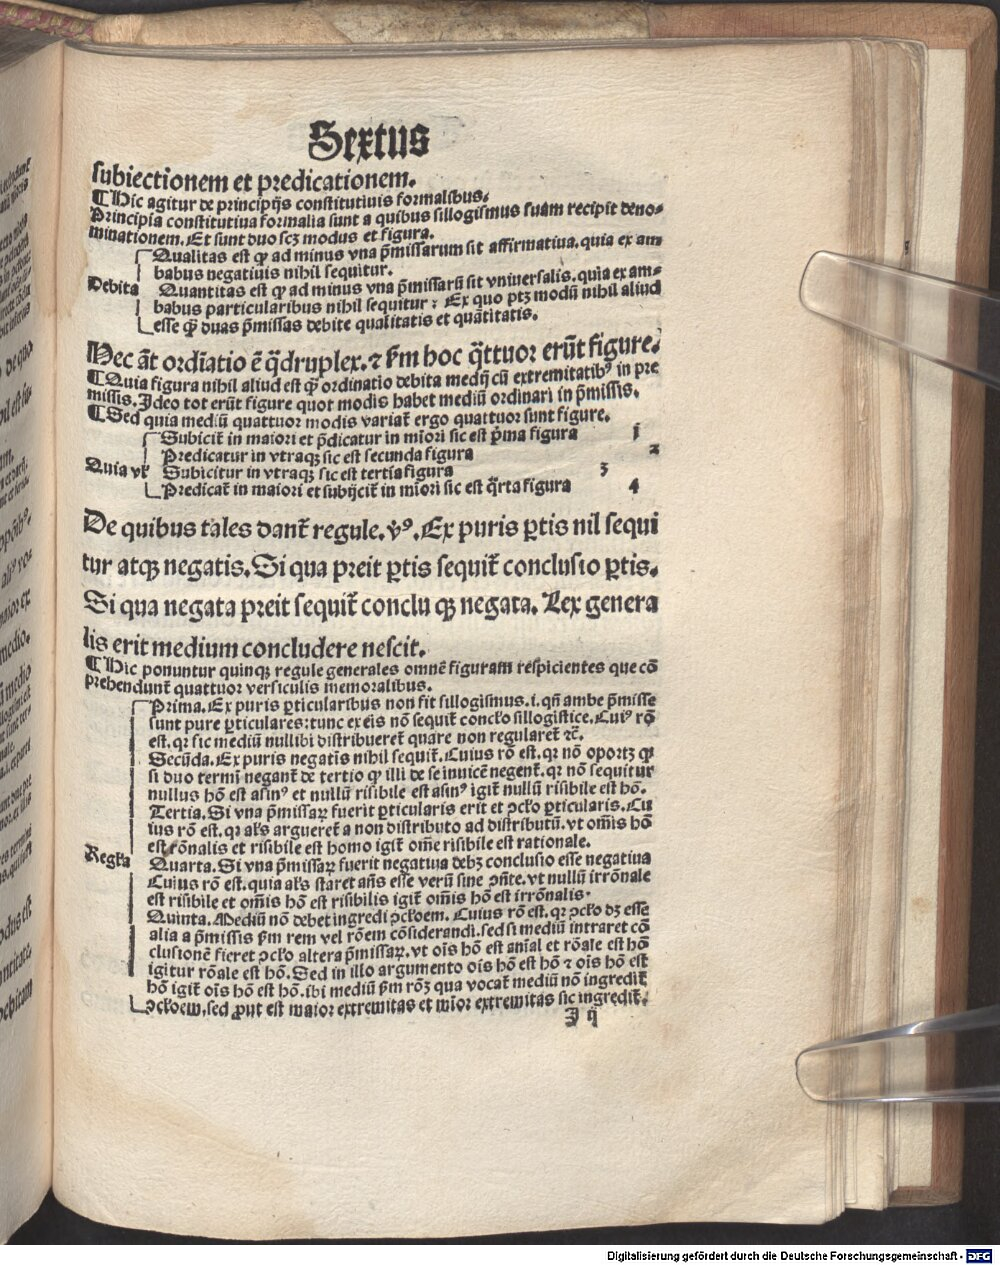 Sextus
subiectionem et predicationem.
¶ Hic agitur de principijs constitutiuis formalibus.
Principia constitutiua formalia sunt a quibus sillogismus suam recipit deno-
minationem. Et sunt duo scꝫ modus et figura.
Qualitas est ꝙ ad minus vna p̄missarum sit affirmatiua. quia ex am
babus negatiuis nihil sequitur.
Debita Quantitas est ꝙ ad minus vna p̄missarū sit vniuersalis. quia ex am-
babus particularibus nihil sequitur ⁊ Ex quo ptꝫ modū nihil aliud
esse ꝙ̄ duas p̄missas debite qualitatis et quātitatis.
Hec āt ordīatio ē q̄druplex. ⁊ ẜm hoc q̄ttuor erūt figure.
¶ Quia figura nihil aliud est ꝙ̄ ordinatio debita medij cū extremitatibꝰ in pre
missis. Ideo tot erūt figure quot modis habet mediū ordinari in p̄missis.
¶ Sed quia mediū quattuor modis variat̄ ergo quattuor sunt figure.
Subicit̄ in maiori et p̄dicatur in mīori sic est p̄ma figura 1
Predicatur in vtraqꝫ sic est secunda figura 2
Quia vꝉ Subicitur in vtraqꝫ sic est tertia figura 3
Predicat̄ in maiori et subijcit̄ in mīori sic est q̄rta figura 4
De quibus tales dant̄ regule. v̓ꝰ. Ex puris ꝑtis nil sequi
tur atqꝫ negatis. Si qua preit ꝑtis sequit̄ conclusio ꝑtis.
Si qua negata preit sequit̄ conclu qꝫ negata. Lex genera
lis erit medium concludere nescit.
¶ Hic ponuntur quinqꝫ regule generales omnē figuram respicientes que cō
prehendunt̄ quattuor versiculis memoralibus.
Prima. Ex puris ꝑticularibus non fit sillogismus. i. qn̄ ambe p̄misse
sunt pure ꝑticulares: tunc ex eis nō sequit̄ concꝉo sillogistice. Cuiꝰ rō
est. qꝛ sic mediū nullibi distribueret̄ quare non regularet̄ ⁊c̄.
Secūda. Ex puris negatīs nihil sequit̄. Cuius rō est. qꝛ nō oportꝫ ꝙ
si duo termī negant̄ de tertio ꝙ illi de se inuicē negent̄. qꝛ nō sequitur
nullus hō est asinꝰ et nullū risibile est asinꝰ igit̄ nullū risibile est hō.
Tertia. Si vna p̄missaꝝ fuerit ꝑticularis erit et ꝯcꝉo ꝑticularis. Cu
ius rō est. qꝛ aꝉs argueret̄ a non distributo ad distributū. vt om̄is hō
est rōnalis et risibile est homo igit̄ om̄e risibile est rationale.
Regꝉa Quarta. Si vna p̄missaꝝ fuerit negatiua debꝫ conclusio esse negatiua
Cuius rō est. quia aꝉs staret an̄s esse verū sine ꝯn̄te. vt nullū irrōnale
est risibile et om̄is hō est risibilis igit̄ om̄is hō est irrōnalis.
Quinta. Mediū nō debet ingredi ꝯcꝉoem. Cuius rō est. qꝛ ꝯcꝉo dꝫ esse
alia a p̄missis ẜm rem vel rōem cōsiderandi. sed si mediū intraret cō
clusionē fieret ꝯcꝉo altera p̄missaꝝ. vt oīs hō est aīal et rōale est hō
igitur rōale est hō. Sed in illo argumento oīs hō est hō ⁊ oīs hō est
hō igit̄ oīs hō est hō. ibi mediū ẜm rōꝫ qua vocat̄ mediū nō ingredit̄
ꝯcꝉoem, sed ꝓut est maior extremitas et mīor extremitas sic ingredit̄.
Digitalisierung gefördert durch die Deutsche Forschungsgemeinschaft - DFG